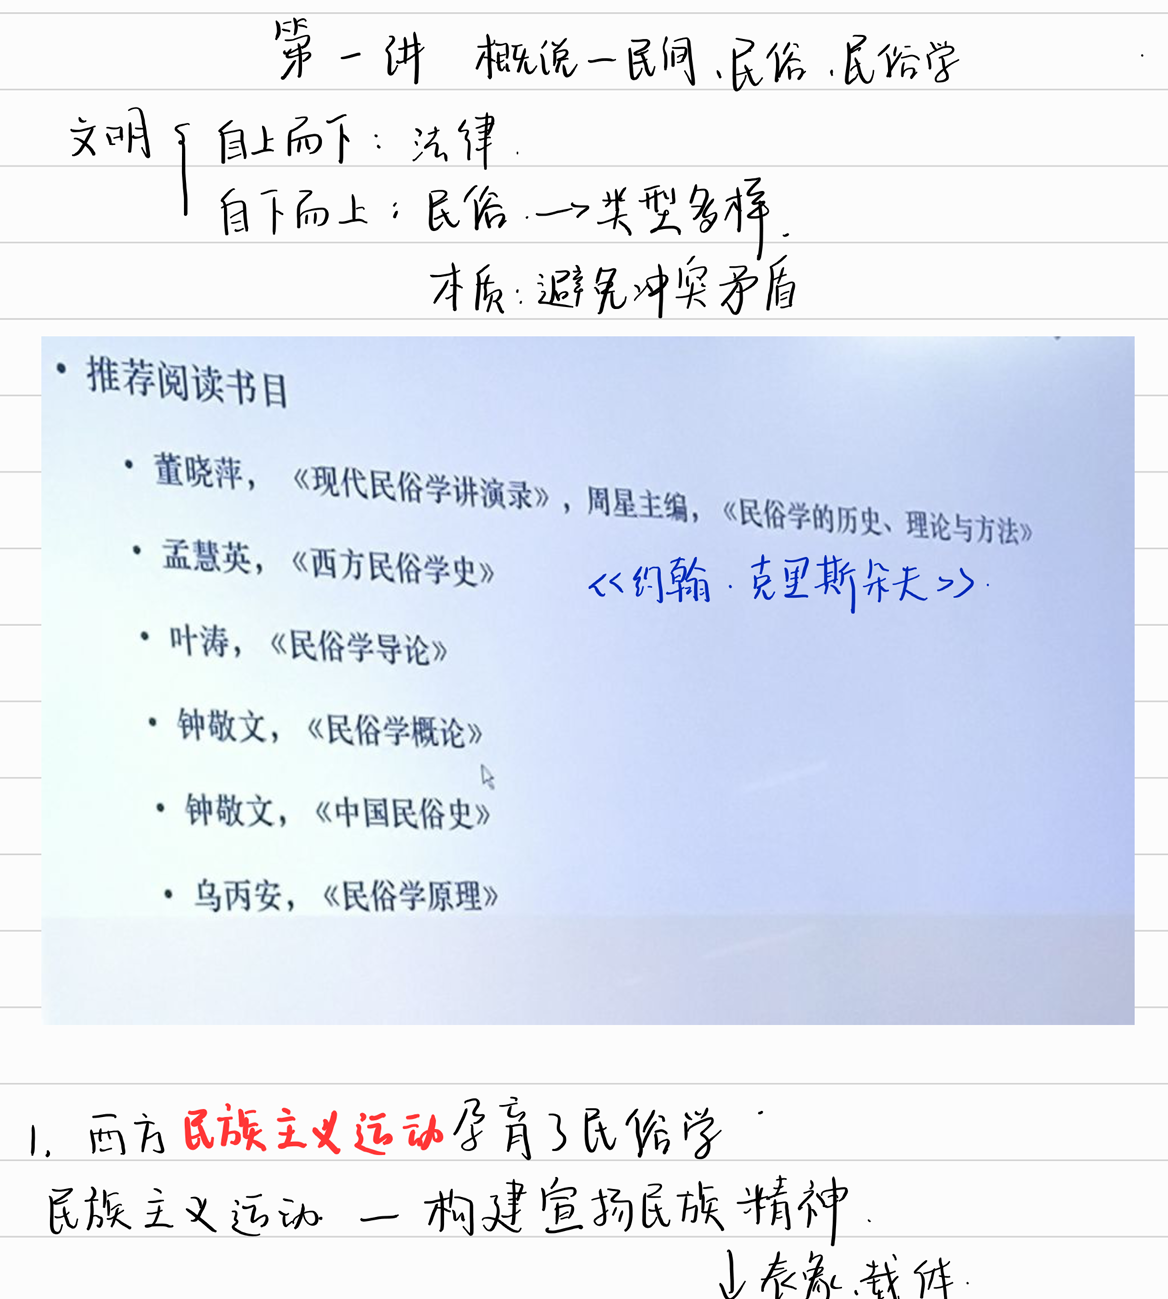 第一讲 概说—民间、民俗、民俗学
文明{ 自上而下：法律.
自下而上：民俗.→类型多样.
本质：避免冲突矛盾
• 推荐阅读书目
• 董晓萍，《现代民俗学讲演录》，周星主编，《民俗学的历史、理论与方法》
• 孟慧英，《西方民俗学史》 <<约翰·克里斯朵夫>>.
• 叶涛，《民俗学导论》
• 钟敬文，《民俗学概论》
• 钟敬文，《中国民俗史》
• 乌丙安，《民俗学原理》
1. 西方民族主义运动孕育了民俗学
民族主义运动 — 构建宣扬民族精神.
↓表象、载体.